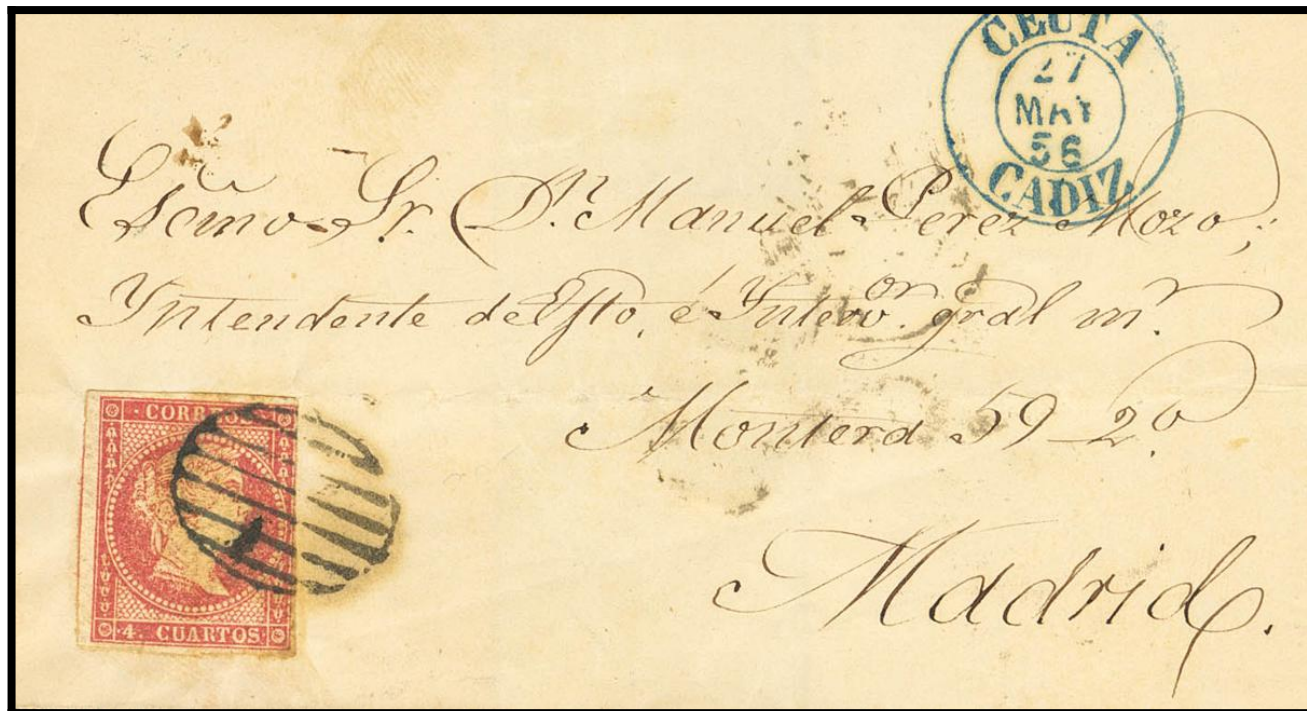 CEUTA
27
MAY
56
CADIZ
Escmo. Sr. Dn. Manuel Perez Mozo;
Yntendente de Efto. é Yntervor. gral mr.
Montera 59 2o
Madrid.
CORREOS
4. CUARTOS